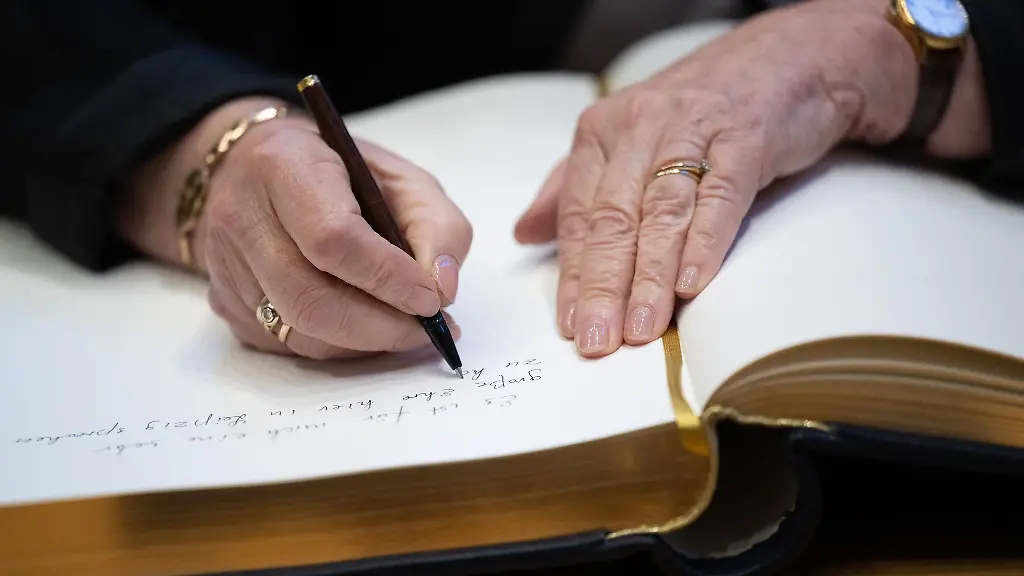 Es ist für mich eine sehr
große Ehre hier in Leipzig sprechen
zu